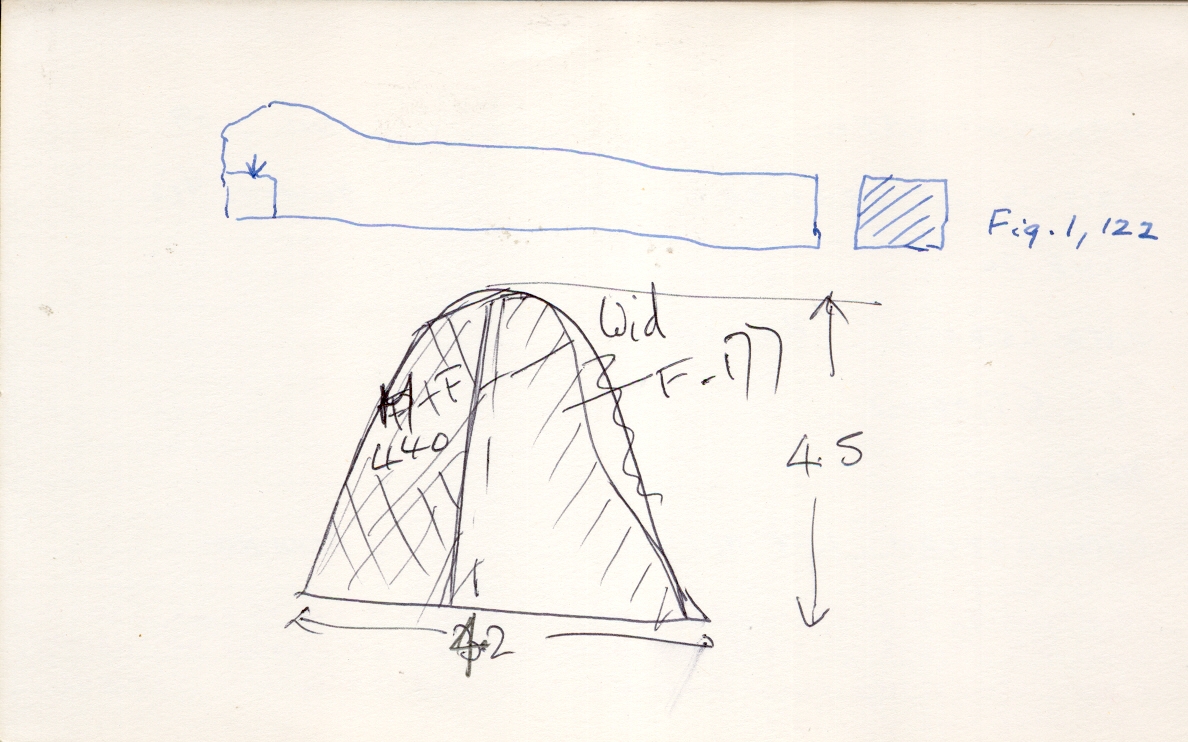 Fig. 1, 122
Wid
F - 177
+ F
440
4.5